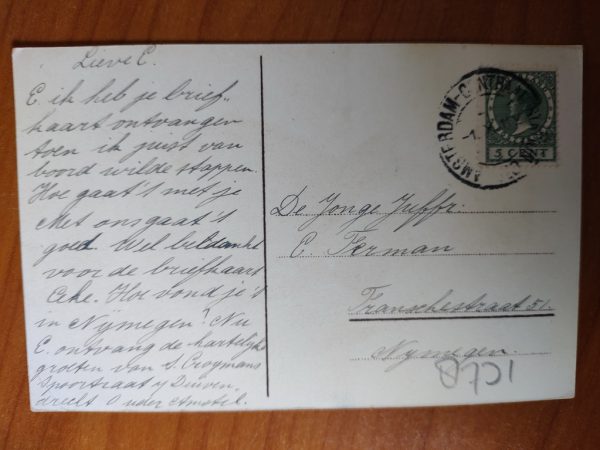 Lieve C.
C. ik heb je brief-
kaart ontvangen
toen ik juist van
boord wilde stappen.
Hoe gaat's met je
Met ons gaat's
goed. Wel bedankt
voor de briefkaart
Hoe vond je't
in Nijmegen? Nu
C. ontvang de hartelijke
groeten van S. Crooymans
Spoorstraat 7 Duiven-
drecht Ouder Amstel.
AMSTERDAM-CENTRAAL
5 CENT
De Jonge Juffr:
C. Ferman
Franschestraat 51.
Nymegen